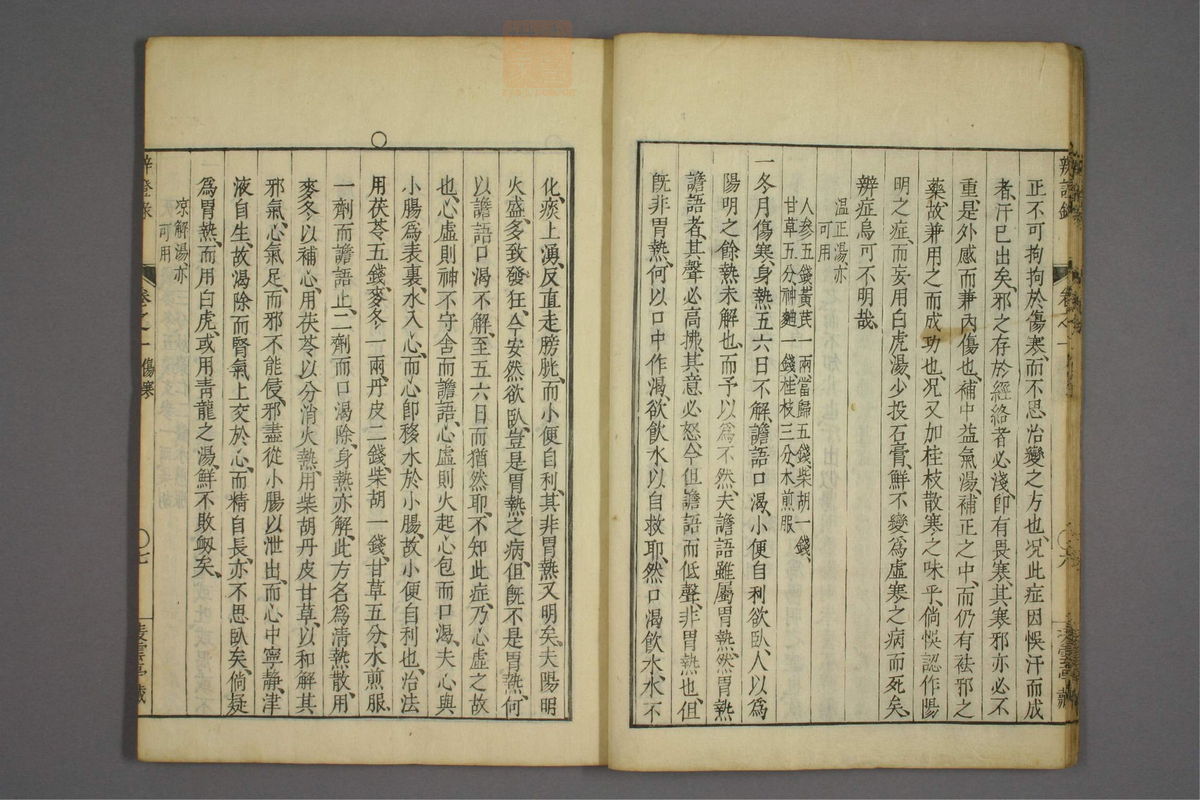 正不可拘拘於傷寒而不思治變之方也况此症因悞汗而成
者汗已出矣邪之存於經絡者必淺卽有畏寒其寒邪亦必不
重是外感而兼內傷也補中益氣湯補正之中而仍有祛邪之
藥故兼用之而成功也况又加桂枝散寒之味乎倘悞認作陽
明之症而妄用白虎湯少投石膏鮮不變爲虛寒之病而死矣
辨症烏可不明哉
温正湯亦
可用
人參五錢黃芪一兩當歸五錢柴胡一錢
甘草五分神麯一錢桂枝三分水煎服
一冬月傷寒身熱五六日不解譫語口渴小便自利欲臥人以爲
陽明之餘熱未解也而予以爲不然夫譫語雖屬胃熱然胃熱
譫語者其聲必高拂其意必怒今但譫語而低聲非胃熱也但
旣非胃熱何以口中作渴欲飲水以自救耶然口渴飲水水不
化痰上湧反直走膀胱而小便自利其非胃熱又明矣夫陽明
火盛多致發狂今安然欲臥豈是胃熱之病但旣不是胃熱何
以譫語口渴不解至五六日而猶然耶不知此症乃心虛之故
也心虛則神不守舍而譫語心虛則火起心包而口渴夫心與
小腸爲表裏水入心而心卽移水於小腸故小便自利也治法
用茯苓五錢麥冬一兩丹皮二錢柴胡一錢甘草五分水煎服
一劑而譫語止二劑而口渴除身熱亦解此方名爲清熱散用
麥冬以補心用茯苓以分消火熱用柴胡丹皮甘草以和解其
邪氣心氣足而邪不能侵邪盡從小腸以泄出而心中寧靜津
液自生故渴除而腎氣上交於心而精自長亦不思臥矣倘疑
爲胃熱而用白虎或用靑龍之湯鮮不敗衂矣
凉解湯亦
可用
卷之一 傷寒
○七